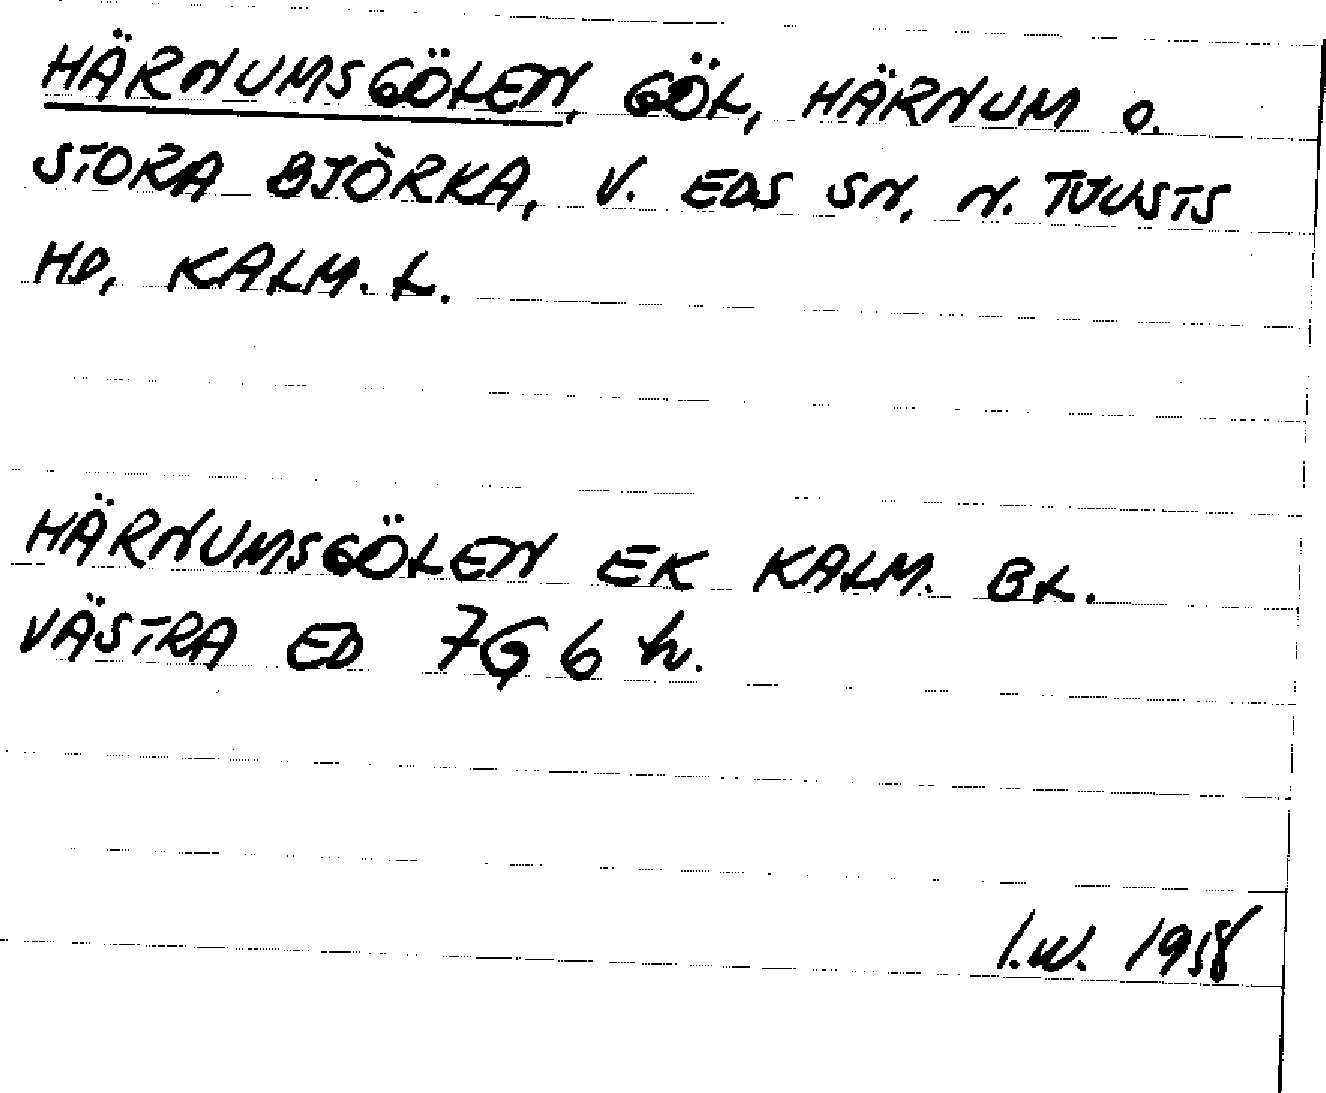 HÄRNUMSGÖLEN, GÖL, HÄRNUM O.
STORA BJÖRKA, V. EDS SN, N. TJUSTS
HD, KALM. L.
HÄRNUMSGÖLEN EK KALM. BL.
VÄSTRA ED 7G 6 h.
I.W. 1958